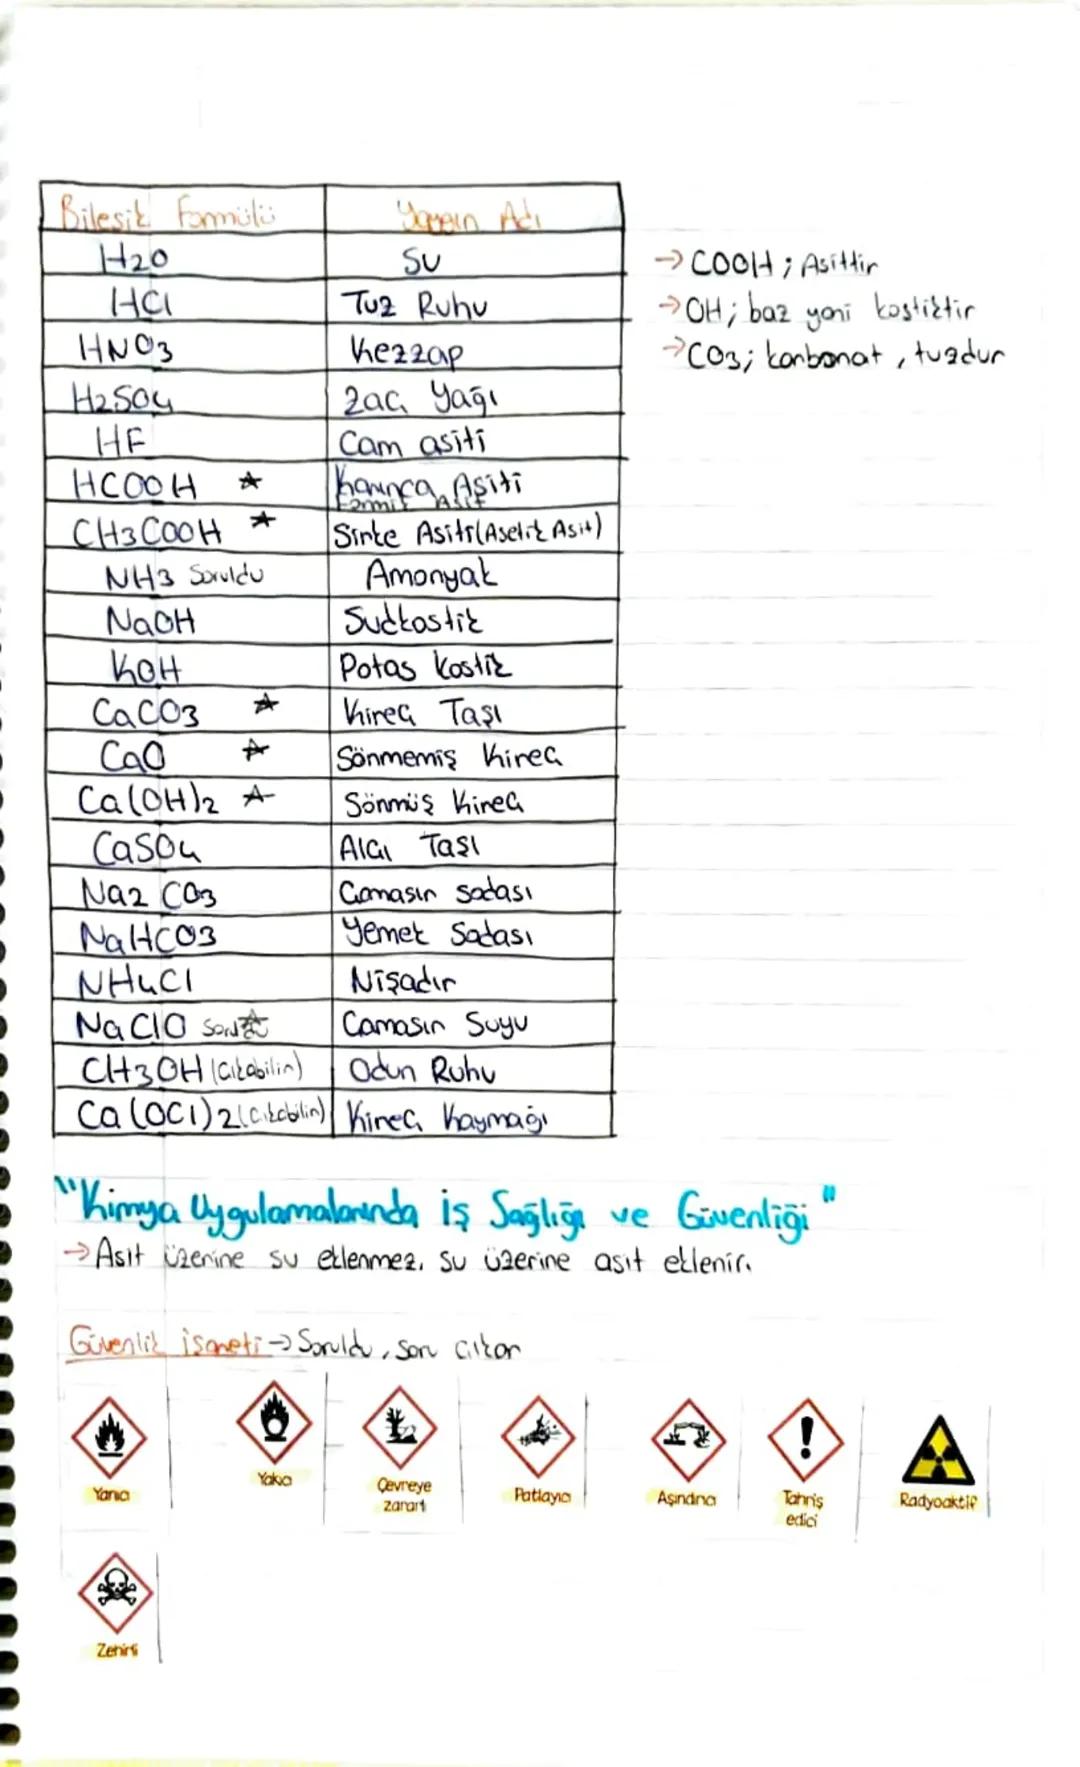 Bileşik Formülü Yaygın Adı
H2O Su
HCl Tuz Ruhu
HNO3 Kezzap
H2SO4 Zaç Yağı
HF Cam asiti
HCOOH ☆ Karınca Asiti
Formik Asit
CH3COOH ☆ Sirke Asiti (Asetik Asit)
NH3 Soruldu Amonyak
NaOH Sudkostik
KOH Potas Kostik
CaCO3 ☆ Kireç Taşı
CaO ☆ Sönmemiş Kireç
Ca(OH)2 ☆ Sönmüş Kireç
CaSO4 Alçı Taşı
Na2CO3 Çamaşır sodası
NaHCO3 Yemek Sodası
NH4Cl Nişadır
NaClO Çamaşır Suyu
CH3OH (Çıkabilir) Odun Ruhu
Ca(OCl)2 (Çıkabilir) Kireç Kaymağı
→ COOH; Asittir
→ OH; baz yani kostiktir
→ CO3; karbonat, tuzdur
"Kimya Uygulamalarında İş Sağlığı ve Güvenliği"
→ Asit üzerine su eklenmez, su üzerine asit eklenir.
Güvenlik işareti → Soruldu, soru çıkar
Yanıcı
Yakıcı
Çevreye
zararlı
Patlayıcı
Aşındırıcı
Tahriş
edici
Radyoaktif
Zehirli